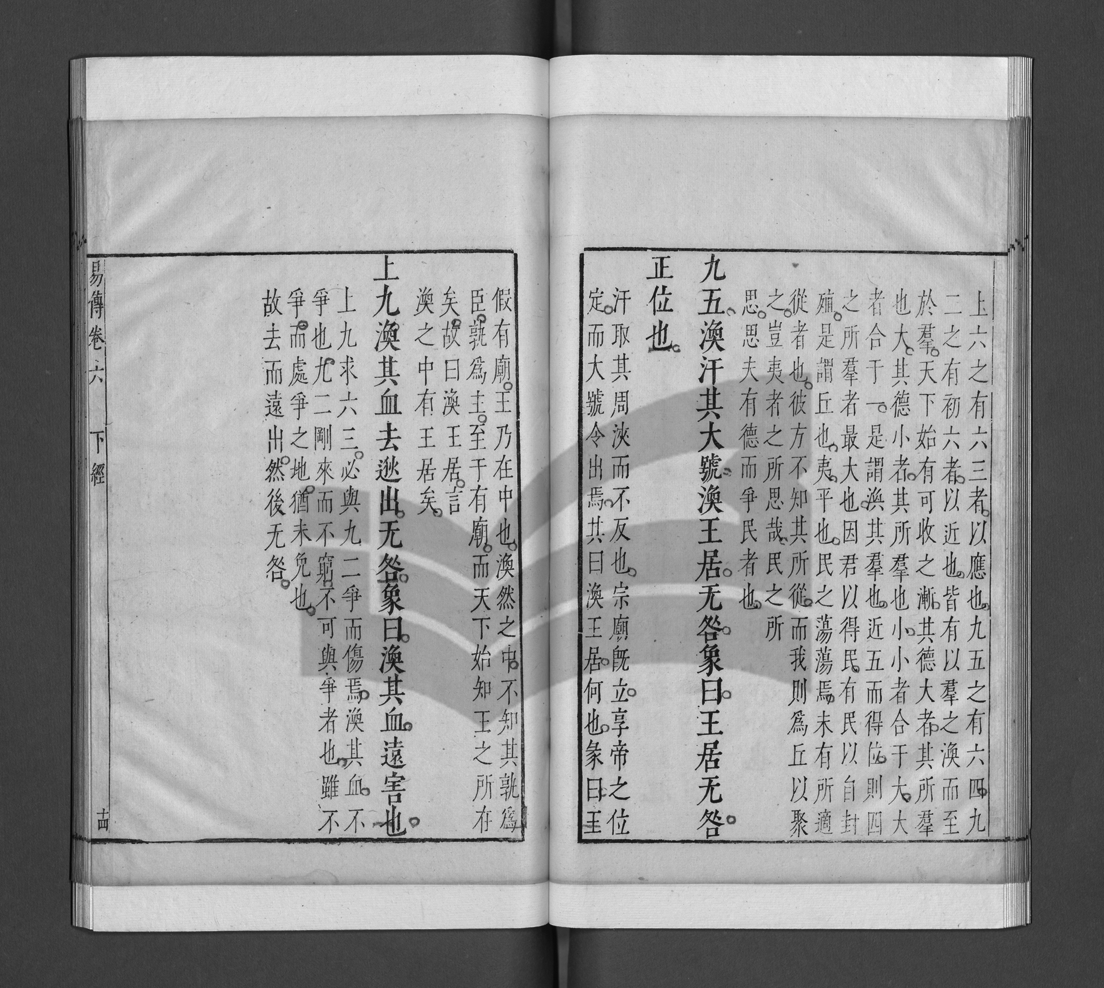 上六之有六三者以應也九五之有六四九
二之有初六者以近也皆有以羣之渙而至
於羣天下始有可收之漸其德大者其所羣
也大其德小者其所羣也小小者合于大大
者合于一是謂渙其羣也近五而得位則四
之所羣者最大也因君以得民有民以自封
殖是謂丘也夷平也民之蕩蕩焉未有所適
從者也彼方不知其所從而我則爲丘以聚
之豈夷者之所思哉民之所
思思夫有德而爭民者也
九五渙汗其大號渙王居无咎象曰王居无咎
正位也
汗取其周浹而不反也宗廟既立享帝之位
定而大號令出焉其曰渙王居何也彖曰王
假有廟王乃在中也渙然之中不知其孰爲
臣孰爲主至于有廟而天下始知王之所存
矣故曰渙王居言
渙之中有王居矣
上九渙其血去逖出无咎象曰渙其血遠害也
上九求六三必與九二爭而傷焉渙其血不
爭也九二剛來而不窮不可與爭者也雖不
爭而處爭之地猶未免也
故去而遠出然後无咎
易傳卷六 下經 十四